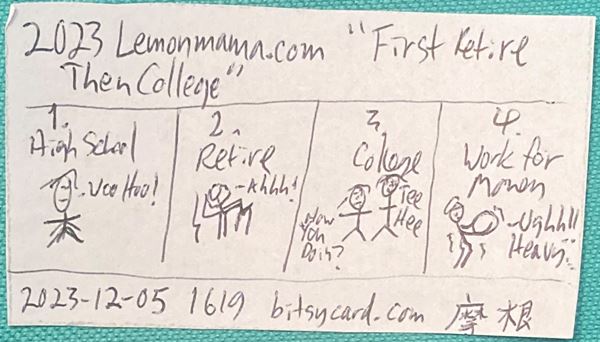 2023 Lemonmama.com "First Retire
Then College"
1.
High School
Woo Hoo!
2.
Retire
Ahhh!
3.
College
How
You
Doin?
Tee
Hee
4.
Work for
Money
Ughh!!
Heavy!!
2023-12-05 1619 bitsycard.com 摩根